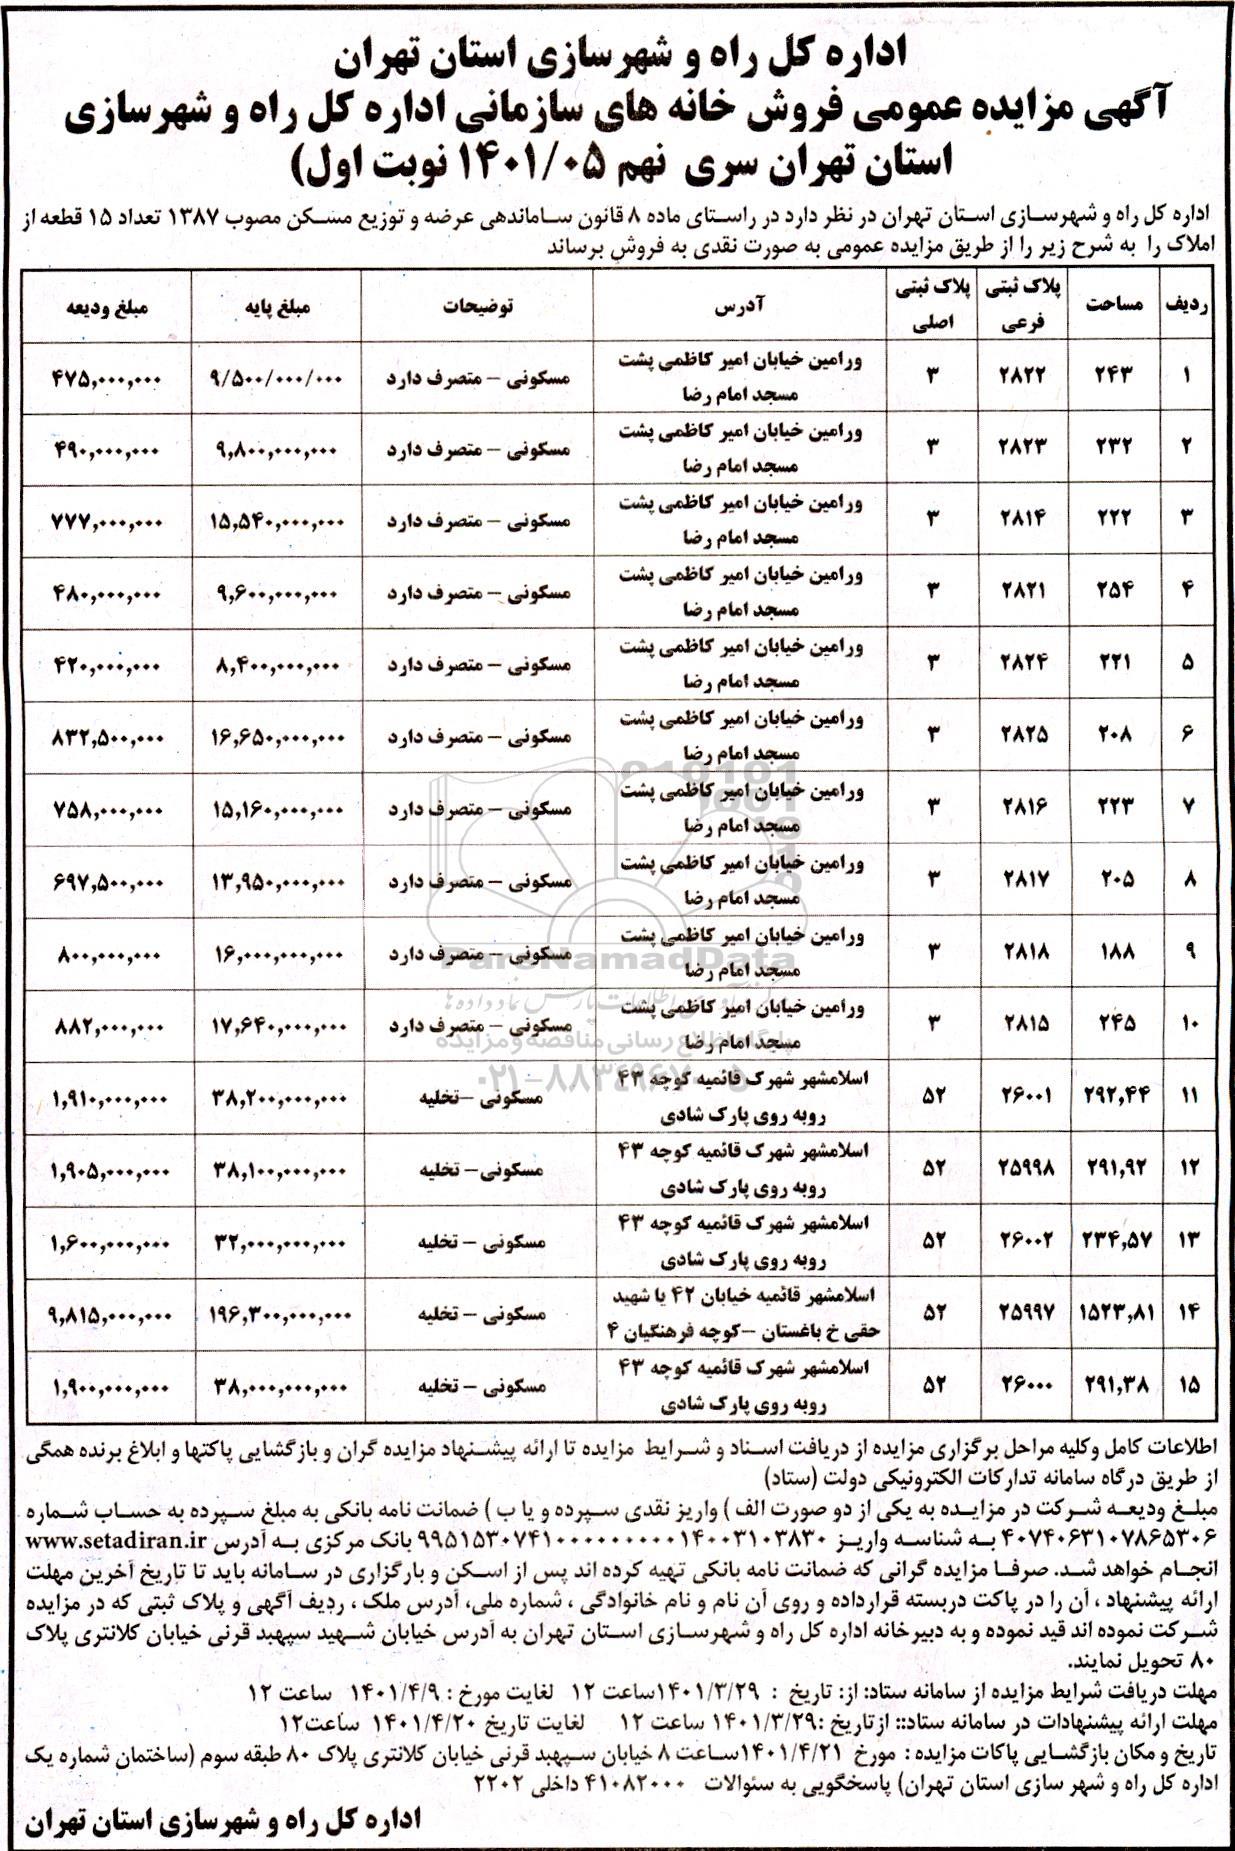 اداره کل راه و شهرسازی استان تهران
آگهی مزایده عمومی فروش خانه های سازمانی اداره کل راه و شهرسازی
استان تهران سری نهم ۱۴۰۱/۰۵ نوبت اول)
اداره کل راه و شهرسازی استان تهران در نظر دارد در راستای ماده ۸ قانون ساماندهی عرضه و توزیع مسکن مصوب ۱۳۸۷ تعداد ۱۵ قطعه از
املاک را به شرح زیر را از طریق مزایده عمومی به صورت نقدی به فروش برساند
ردیف مساحت پلاک ثبتی فرعی پلاک ثبتی اصلی آدرس توضیحات مبلغ پایه مبلغ ودیعه
۱ ۲۴۳ ۲۸۲۲ ۳ ورامین خیابان امیر کاظمی پشت مسجد امام رضا مسکونی – متصرف دارد ۹/۵۰۰/۰۰۰/۰۰۰ ۴۷۵,۰۰۰,۰۰۰
۲ ۲۳۲ ۲۸۲۳ ۳ ورامین خیابان امیر کاظمی پشت مسجد امام رضا مسکونی – متصرف دارد ۹,۸۰۰,۰۰۰,۰۰۰ ۴۹۰,۰۰۰,۰۰۰
۳ ۲۲۲ ۲۸۱۴ ۳ ورامین خیابان امیر کاظمی پشت مسجد امام رضا مسکونی – متصرف دارد ۱۵,۵۴۰,۰۰۰,۰۰۰ ۷۷۷,۰۰۰,۰۰۰
۴ ۲۵۴ ۲۸۲۱ ۳ ورامین خیابان امیر کاظمی پشت مسجد امام رضا مسکونی – متصرف دارد ۹,۶۰۰,۰۰۰,۰۰۰ ۴۸۰,۰۰۰,۰۰۰
۵ ۲۲۱ ۲۸۲۴ ۳ ورامین خیابان امیر کاظمی پشت مسجد امام رضا مسکونی – متصرف دارد ۸,۴۰۰,۰۰۰,۰۰۰ ۴۲۰,۰۰۰,۰۰۰
۶ ۲۰۸ ۲۸۲۵ ۳ ورامین خیابان امیر کاظمی پشت مسجد امام رضا مسکونی – متصرف دارد ۱۶,۶۵۰,۰۰۰,۰۰۰ ۸۳۲,۵۰۰,۰۰۰
۷ ۲۲۳ ۲۸۱۶ ۳ ورامین خیابان امیر کاظمی پشت مسجد امام رضا مسکونی – متصرف دارد ۱۵,۱۶۰,۰۰۰,۰۰۰ ۷۵۸,۰۰۰,۰۰۰
۸ ۲۰۵ ۲۸۱۷ ۳ ورامین خیابان امیر کاظمی پشت مسجد امام رضا مسکونی – متصرف دارد ۱۳,۹۵۰,۰۰۰,۰۰۰ ۶۹۷,۵۰۰,۰۰۰
۹ ۱۸۸ ۲۸۱۸ ۳ ورامین خیابان امیر کاظمی پشت مسجد امام رضا مسکونی – متصرف دارد ۱۶,۰۰۰,۰۰۰,۰۰۰ ۸۰۰,۰۰۰,۰۰۰
۱۰ ۲۴۵ ۲۸۱۵ ۳ ورامین خیابان امیر کاظمی پشت مسجد امام رضا مسکونی – متصرف دارد ۱۷,۶۴۰,۰۰۰,۰۰۰ ۸۸۲,۰۰۰,۰۰۰
۱۱ ۲۹۲,۴۴ ۲۶۰۰۱ ۵۲ اسلامشهر شهرک قائمیه کوچه ۴۳ روبه روی پارک شادی مسکونی –تخلیه ۳۸,۲۰۰,۰۰۰,۰۰۰ ۱,۹۱۰,۰۰۰,۰۰۰
۱۲ ۲۹۱,۹۲ ۲۵۹۹۸ ۵۲ اسلامشهر شهرک قائمیه کوچه ۴۳ روبه روی پارک شادی مسکونی– تخلیه ۳۸,۱۰۰,۰۰۰,۰۰۰ ۱,۹۰۵,۰۰۰,۰۰۰
۱۳ ۲۳۴,۵۷ ۲۶۰۰۲ ۵۲ اسلامشهر شهرک قائمیه کوچه ۴۳ روبه روی پارک شادی مسکونی – تخلیه ۳۲,۰۰۰,۰۰۰,۰۰۰ ۱,۶۰۰,۰۰۰,۰۰۰
۱۴ ۱۵۲۳,۸۱ ۲۵۹۹۷ ۵۲ اسلامشهر قائمیه خیابان ۴۲ یا شهید حقی خ باغستان –کوچه فرهنگیان ۴ مسکونی – تخلیه ۱۹۶,۳۰۰,۰۰۰,۰۰۰ ۹,۸۱۵,۰۰۰,۰۰۰
۱۵ ۲۹۱,۳۸ ۲۶۰۰۰ ۵۲ اسلامشهر شهرک قائمیه کوچه ۴۳ روبه روی پارک شادی مسکونی – تخلیه ۳۸,۰۰۰,۰۰۰,۰۰۰ ۱,۹۰۰,۰۰۰,۰۰۰
ParsNamadData
پایگاه اطلاع رسانی مناقصه و مزایده
۰۲۱-۸۸۳۴۹۶۷۰-۵
اطلاعات کامل وکلیه مراحل برگزاری مزایده از دریافت اسناد و شرایط مزایده تا ارائه پیشنهاد مزایده گران و بازگشایی پاکتها و ابلاغ برنده همگی
از طریق درگاه سامانه تدارکات الکترونیکی دولت (ستاد)
مبلغ ودیعه شرکت در مزایده به یکی از دو صورت الف ) واریز نقدی سپرده و یا ب ) ضمانت نامه بانکی به مبلغ سپرده به حساب شماره
۴۰۷۴۰۶۳۱۰۷۸۶۵۳۰۶ به شناسه واریز ۹۹۵۱۵۳۰۷۴۱۰۰۰۰۰۰۰۰۰۰۱۴۰۰۳۱۰۳۸۳۰ بانک مرکزی به آدرس www.setadiran.ir
انجام خواهد شد. صرفا مزایده گرانی که ضمانت نامه بانکی تهیه کرده اند پس از اسکن و بارگزاری در سامانه باید تا تاریخ آخرین مهلت
ارائه پیشنهاد ، آن را در پاکت دربسته قرارداده و روی آن نام و نام خانوادگی ، شماره ملی، آدرس ملک ، ردیف آگهی و پلاک ثبتی که در مزایده
شرکت نموده اند قید نموده و به دبیرخانه اداره کل راه و شهرسازی استان تهران به آدرس خیابان شهید سپهبد قرنی خیابان کلانتری پلاک
۸۰ تحویل نمایند.
مهلت دریافت شرایط مزایده از سامانه ستاد: از: تاریخ : ۱۴۰۱/۳/۲۹ساعت ۱۲ لغایت مورخ : ۱۴۰۱/۴/۹ ساعت ۱۲
مهلت ارائه پیشنهادات در سامانه ستاد:: ازتاریخ :۱۴۰۱/۳/۲۹ ساعت ۱۲ لغایت تاریخ ۱۴۰۱/۴/۲۰ ساعت۱۲
تاریخ و مکان بازگشایی پاکات مزایده : مورخ ۱۴۰۱/۴/۲۱ساعت ۸ خیابان سپهبد قرنی خیابان کلانتری پلاک ۸۰ طبقه سوم (ساختمان شماره یک
اداره کل راه و شهر سازی استان تهران) پاسخگویی به سئوالات ۴۱۰۸۲۰۰۰ داخلی ۲۲۰۲
اداره کل راه و شهرسازی استان تهران